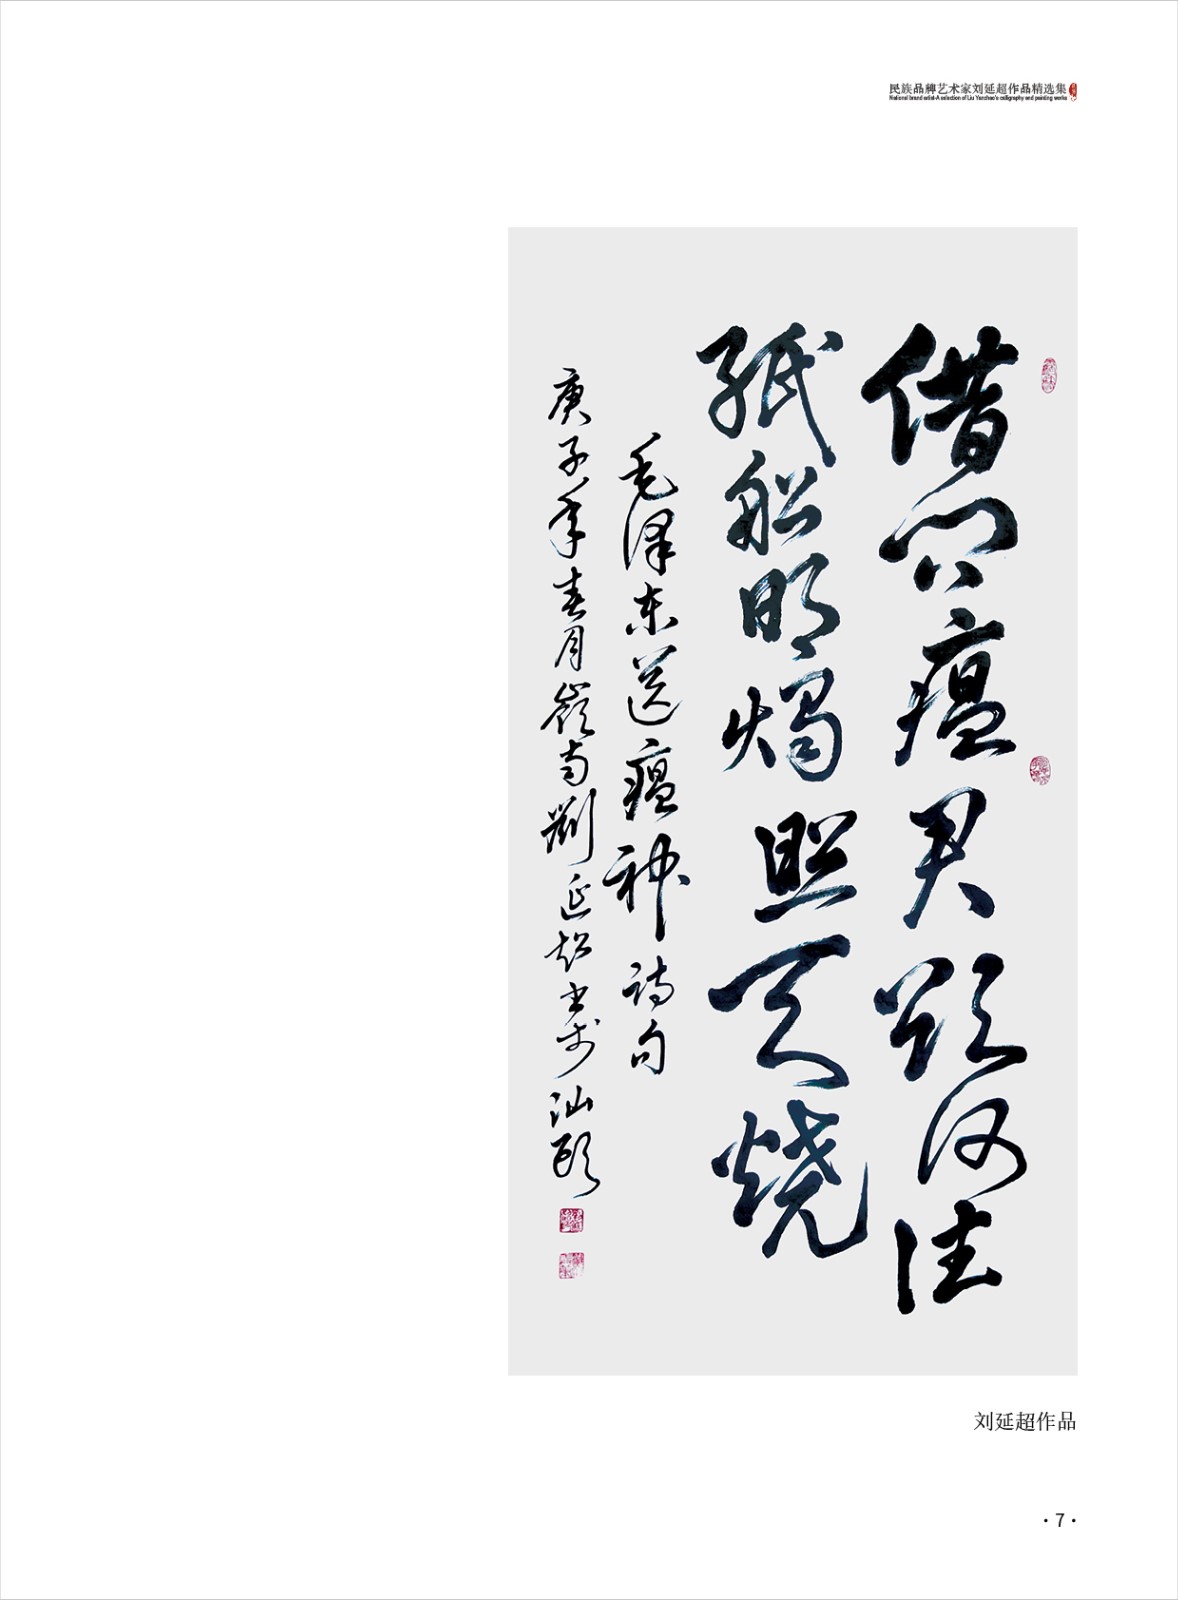 民族品牌艺术家刘延超作品精选集
National brand artist-A selection of Liu Yanchao's calligraphy and painting works
借问瘟君欲何往
纸船明烛照天烧
毛泽东送瘟神诗句
庚子年春月嶺南劉延超书于汕头
刘延超作品
·7·